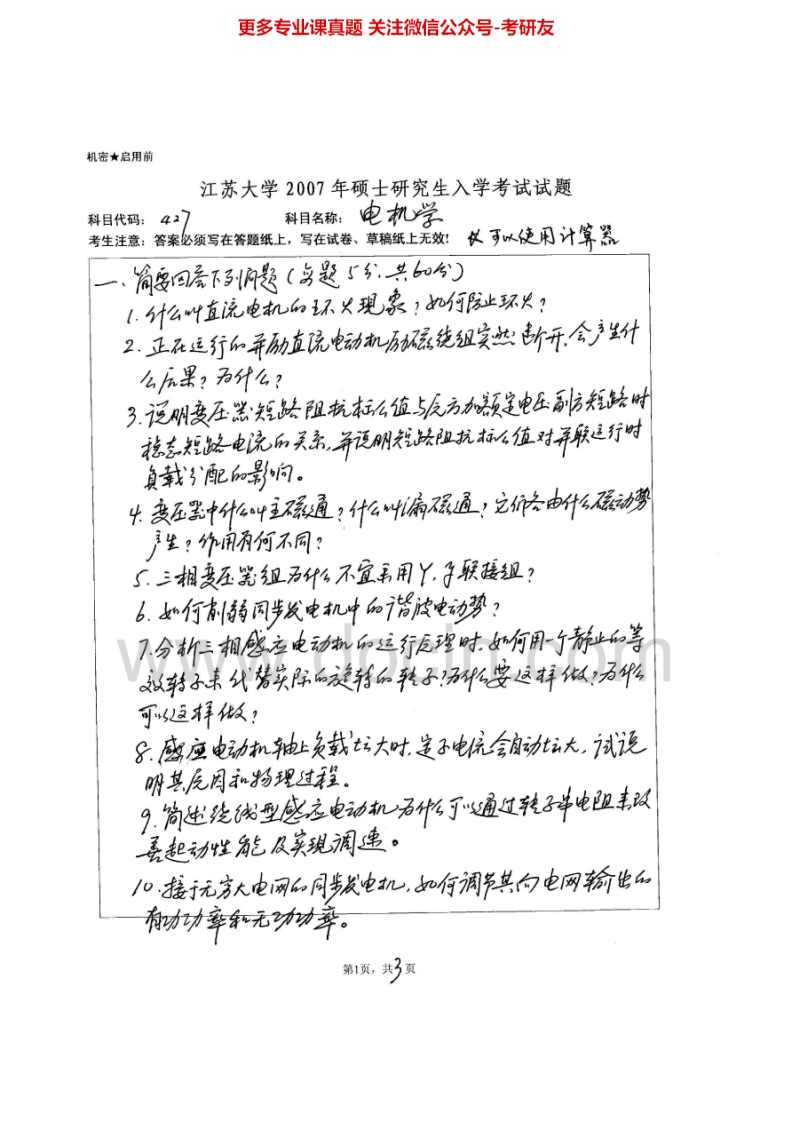 更多专业课真题 关注微信公众号-考研友
机密★启用前
江苏大学 2007 年硕士研究生入学考试试题
科目代码： 427 科目名称： 电机学
考生注意：答案必须写在答题纸上，写在试卷、草稿纸上无效! 仅可以使用计算器
一、简要回答下列问题（每题5分，共60分）
1. 什么叫直流电机的环火现象？如何防止环火？
2. 正在运行的并励直流电动机励磁绕组突然断开，会产生什
么后果？为什么？
3. 说明变压器短路阻抗标么值与原方加额定电压副方短路时
稳态短路电流的关系，并说明短路阻抗标么值对并联运行时
负载分配的影响。
4. 变压器中什么叫主磁通？什么叫漏磁通？它们各由什么磁动势
产生？作用有何不同？
5. 三相变压器组为什么不宜采用Y，y联接组？
6. 如何削弱同步发电机中的谐波电动势？
7. 分析三相感应电动机的运行原理时，如何用一个静止的等
效转子来代替实际的旋转的转子？为什么要这样做？为什么
可以这样做？
8. 感应电动机轴上负载增大时，定子电流会自动增大，试说
明其原因和物理过程。
9. 简述绕线型感应电动机为什么可以通过转子串电阻来改
善起动性能及实现调速。
10. 接于无穷大电网的同步发电机，如何调节其向电网输出的
有功功率和无功功率。
第1页，共3页